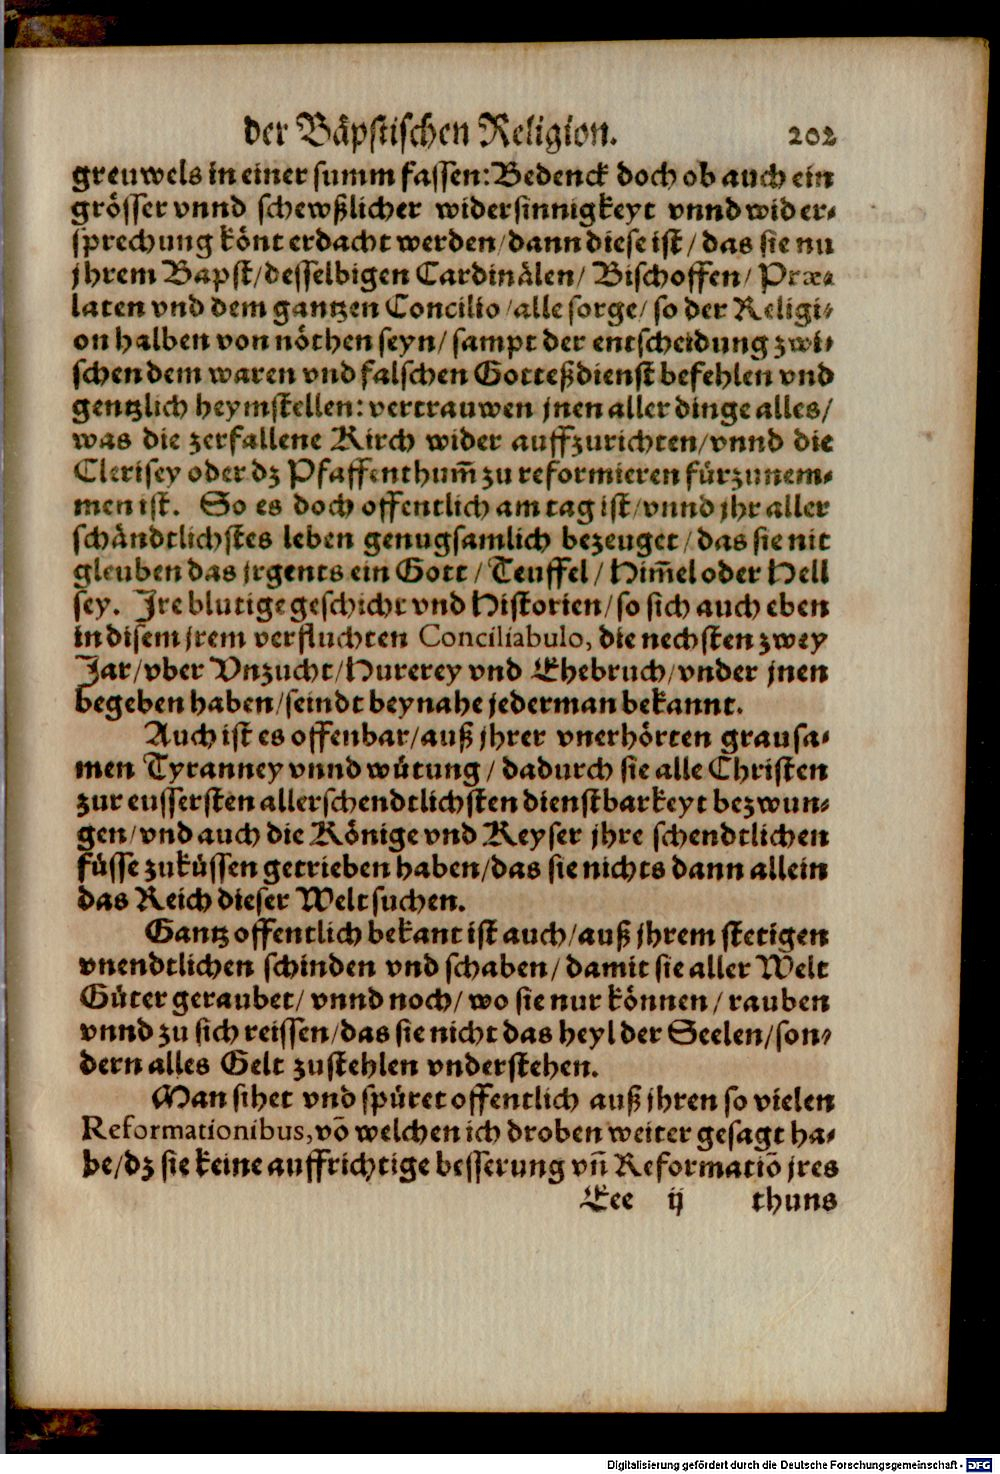 der Bäpstischen Religion. 202
greuwels in einer summ fassen: Bedenck doch ob auch ein
grösser vnnd schewßlicher widersinnigkeyt vnnd wider-
sprechung könt erdacht werden/ dann diese ist/ das sie nu
jhrem Bapst/ desselbigen Cardinälen/ Bischoffen/ Præ-
laten vnd dem gantzen Concilio/ alle sorge/ so der Religi-
on halben von nöthen seyn/ sampt der entscheidung zwi-
schen dem waren vnd falschen Gotteßdienst befehlen vnd
gentzlich heymstellen: vertrauwen jnen aller dinge alles/
was die zerfallene Kirch wider auffzurichten/ vnnd die
Clerisey oder dz Pfaffenthum̃ zu reformieren fürzunem-
men ist. So es doch offentlich am tag ist/ vnnd jhr aller
schändtlichstes leben genugsamlich bezeuget/ das sie nit
gleuben das jrgents ein Gott/ Teuffel/ Him̃el oder Hell
sey. Jre blutige geschicht vnd Historien/ so sich auch eben
in disem jrem verfluchten Conciliabulo, die nechsten zwey
Jar/ vber Vnzucht/ Hurerey vnd Ehebruch/ vnder jnen
begeben haben/ seindt beynahe jederman bekannt.
Auch ist es offenbar/ auß jhrer vnerhörten grausa-
men Tyranney vnnd wütung/ dadurch sie alle Christen
zur eussersten allerschendtlichsten dienstbarkeyt bezwun-
gen/ vnd auch die Könige vnd Keyser jhre schendtlichen
füsse zuküssen getrieben haben/ das sie nichts dann allein
das Reich dieser Welt suchen.
Gantz offentlich bekant ist auch/ auß jhrem stetigen
vnendtlichen schinden vnd schaben/ damit sie aller Welt
Güter geraubet/ vnnd noch/ wo sie nur können/ rauben
vnnd zu sich reissen/ das sie nicht das heyl der Seelen/ son-
dern alles Gelt zustehlen vnderstehen.
Man sihet vnd spüret offentlich auß jhren so vielen
Reformationibus, võ welchen ich droben weiter gesagt ha-
be/ dz sie keine auffrichtige besserung vñ Reformatiõ jres
Eee ij thuns
Digitalisierung gefördert durch die Deutsche Forschungsgemeinschaft - DFG